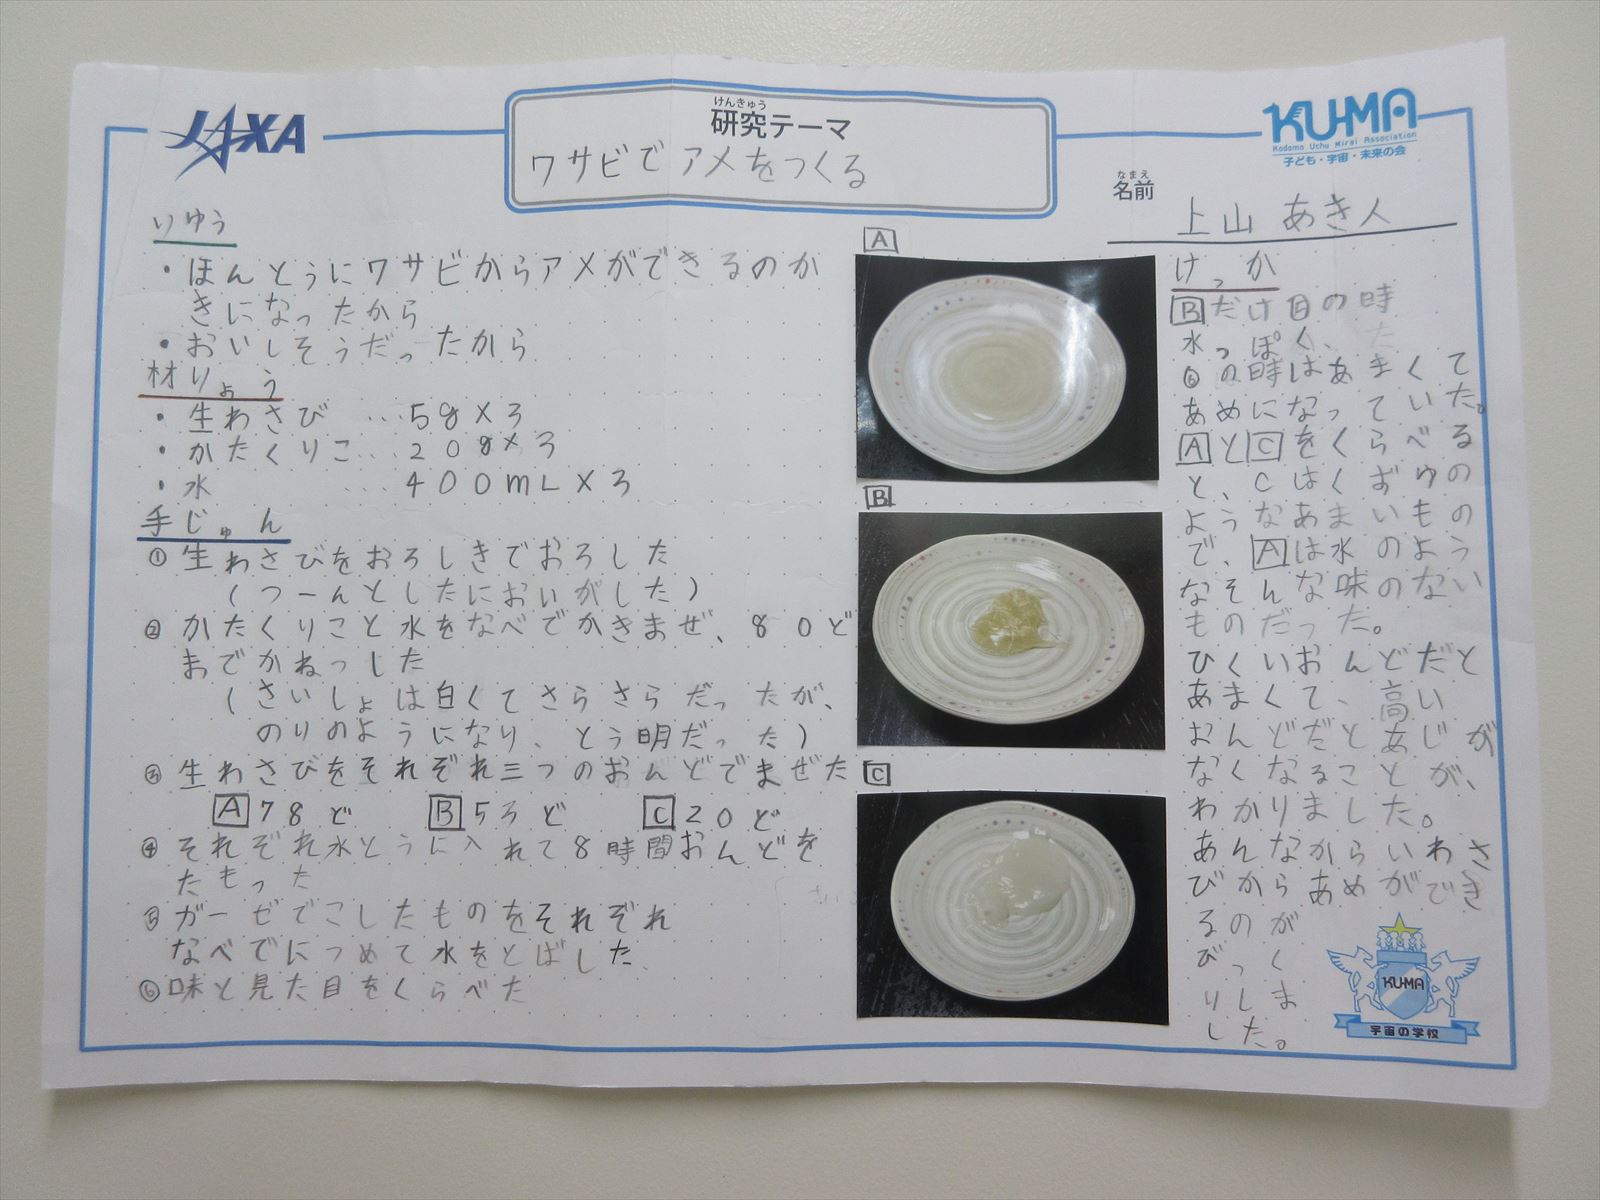 JAXA
けんきゅう
研究テーマ
ワサビでアメをつくる
KU-MA
Kodomo Uchu Mirai Association
子ども・宇宙・未来の会
なまえ
名前
上山 あき人
りゆう
・ほんとうにワサビからアメができるのか
きになったから
・おいしそうだったから
材りょう
・生わさび …5g×3
・かたくりこ…20g×3
・水 …400mL×3
手じゅん
①生わさびをおろしきでおろした
(つーんとしたにおいがした)
②かたくりこと水をなべでかきまぜ、80ど
までかねっした
(さいしょは白くてさらさらだったが、
のりのようになり、とう明だった)
③生わさびをそれぞれ三つのおんどでまぜた
A78ど B53ど C20ど
④それぞれ水とうに入れて8時間おんどを
たもった
⑤ガーゼでこしたものをそれぞれ
なべでにつめて水をとばした
⑥味と見た目をくらべた
A
B
C
けっか
Bだけ目の時
水っぽく、た
⑥の時はあまくて
あめになっていた。
AとCをくらべる
と、Cはくずゆの
ようなあまいもの
で、Aは水のよう
なそんな味のない
ものだった。
ひくいおんどだと
あまくて、高い
おんどだとあじが
なくなることが、
わかりました。
あんなからいわさ
びからあめができ
るのが
びっく
りしま
した。
KU-MA
宇宙の学校